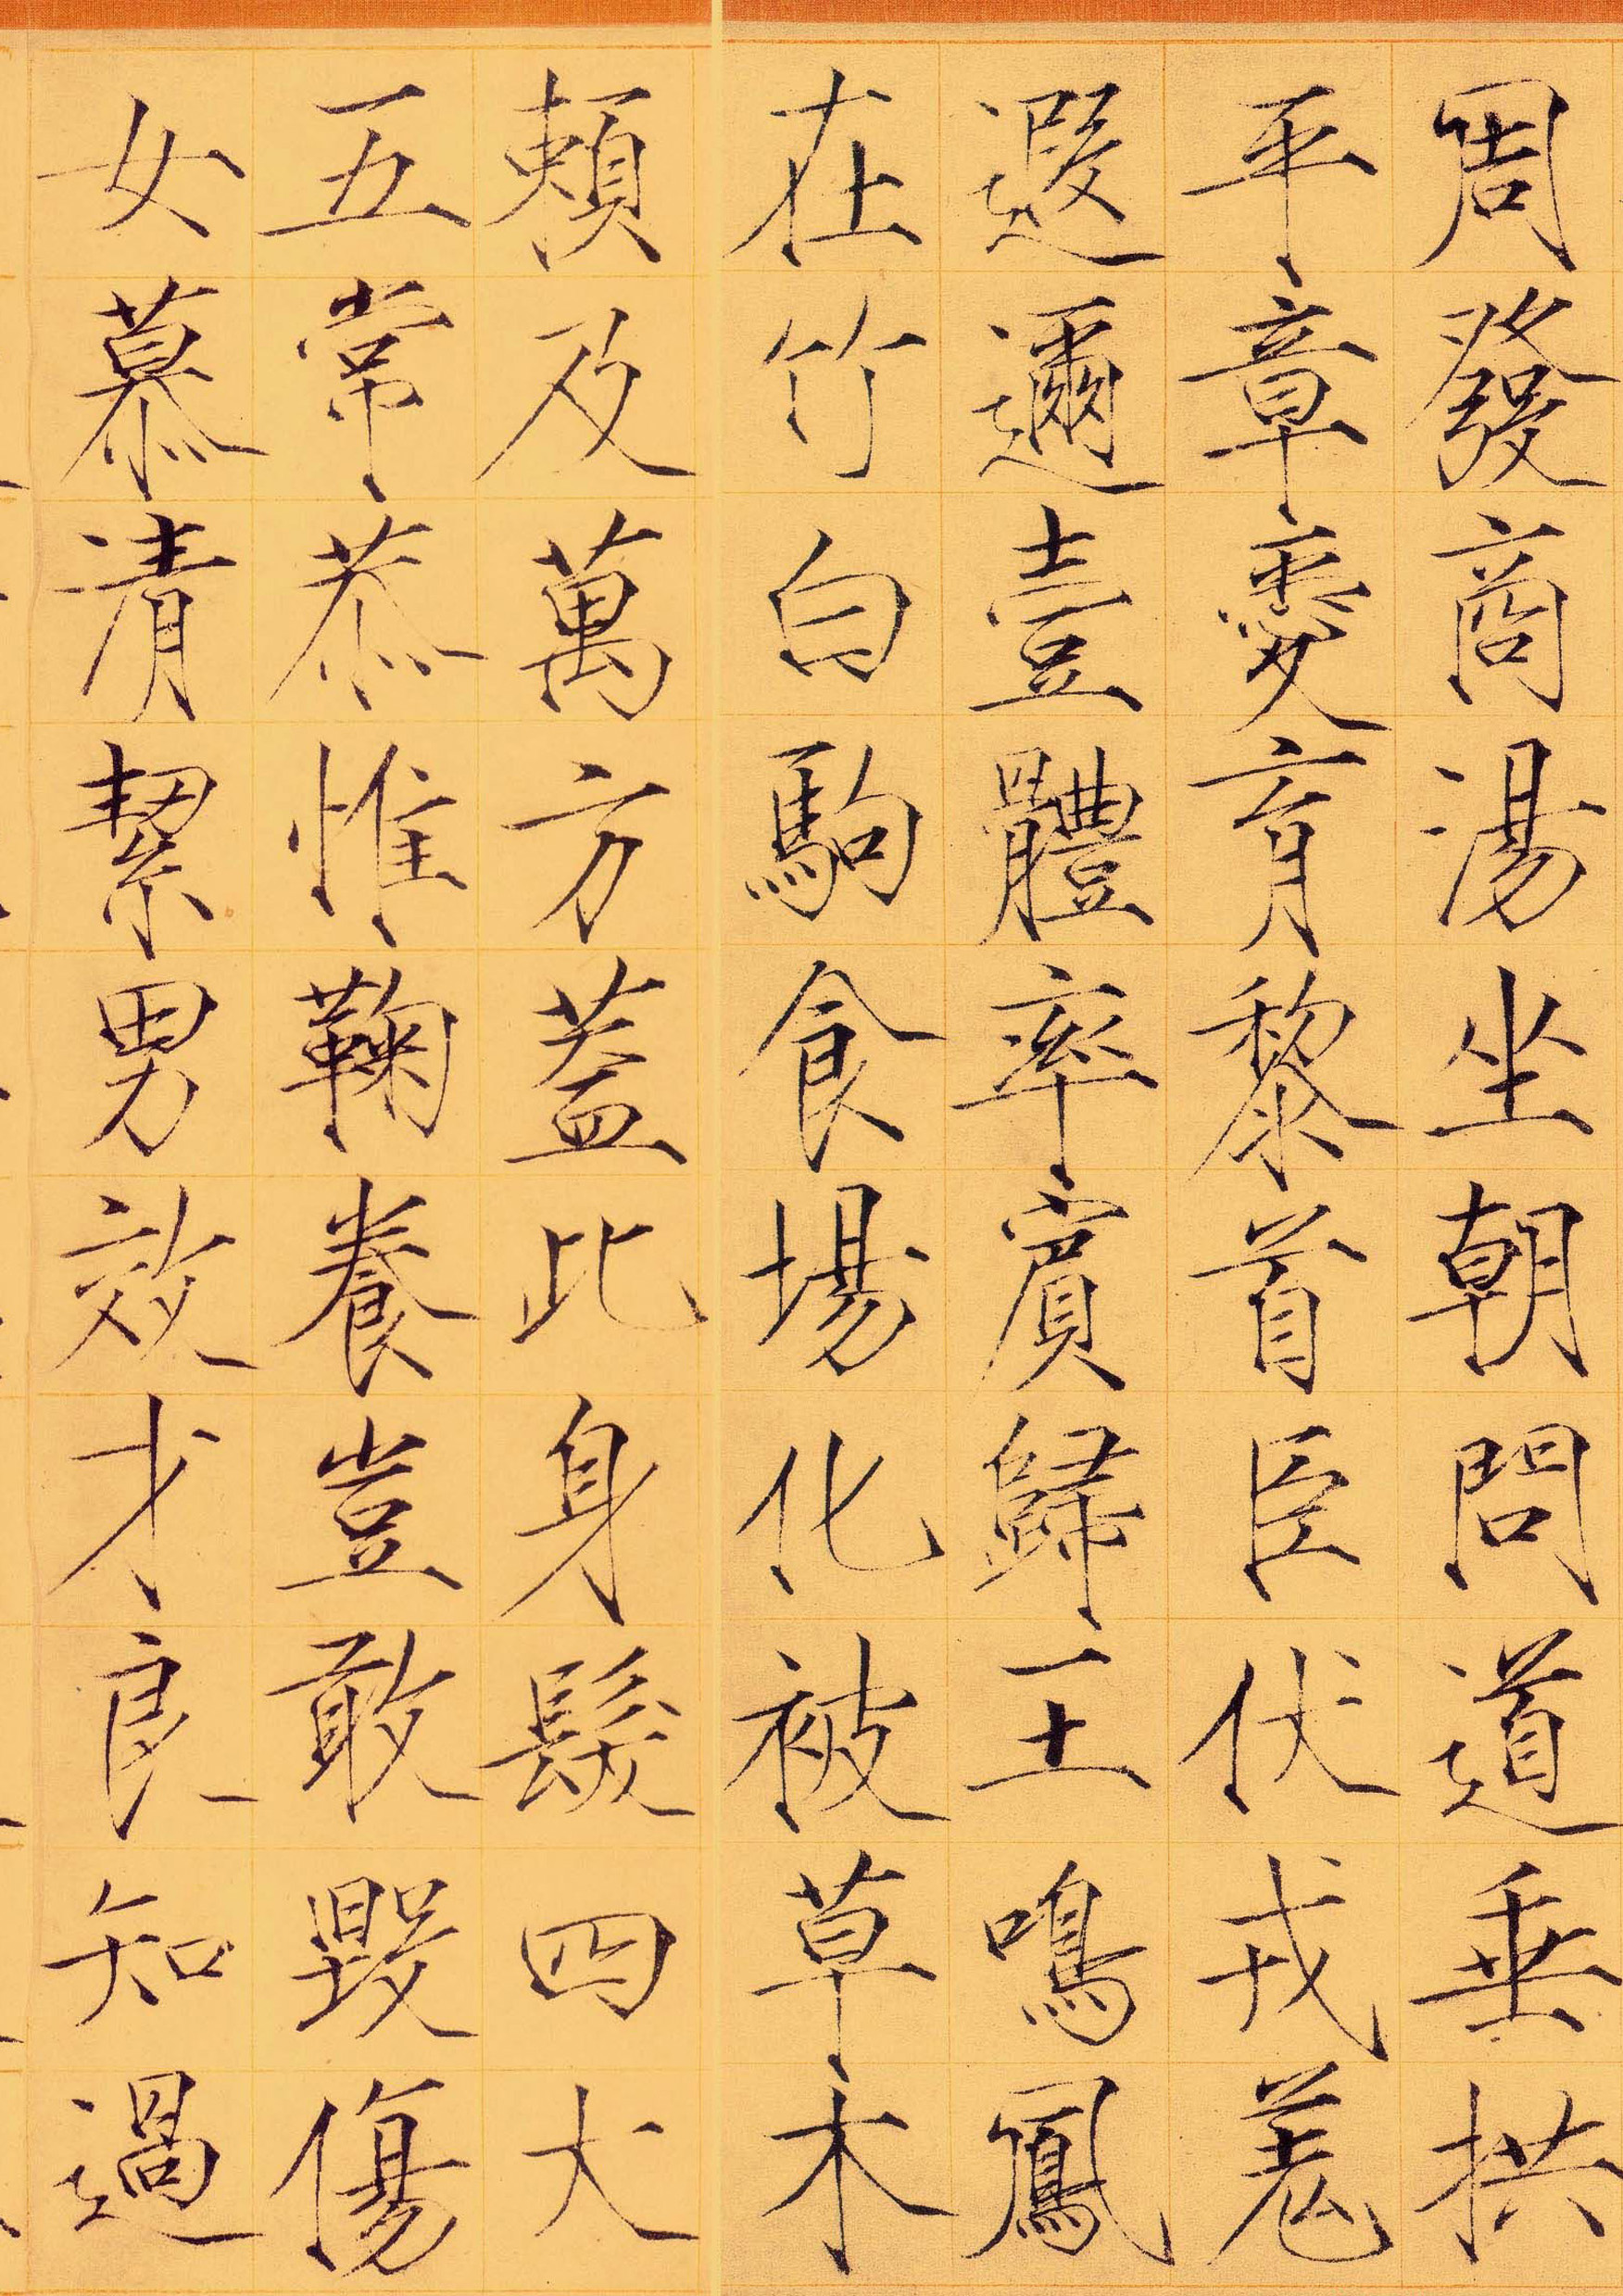 周發商湯坐朝問道垂拱
平章愛育黎首臣伏戎羌
遐邇壹體率賓歸王鳴鳳
在竹白駒食場化被草木
賴及萬方蓋此身髮四大
五常恭惟鞠養豈敢毀傷
女慕清絜男效才良知過